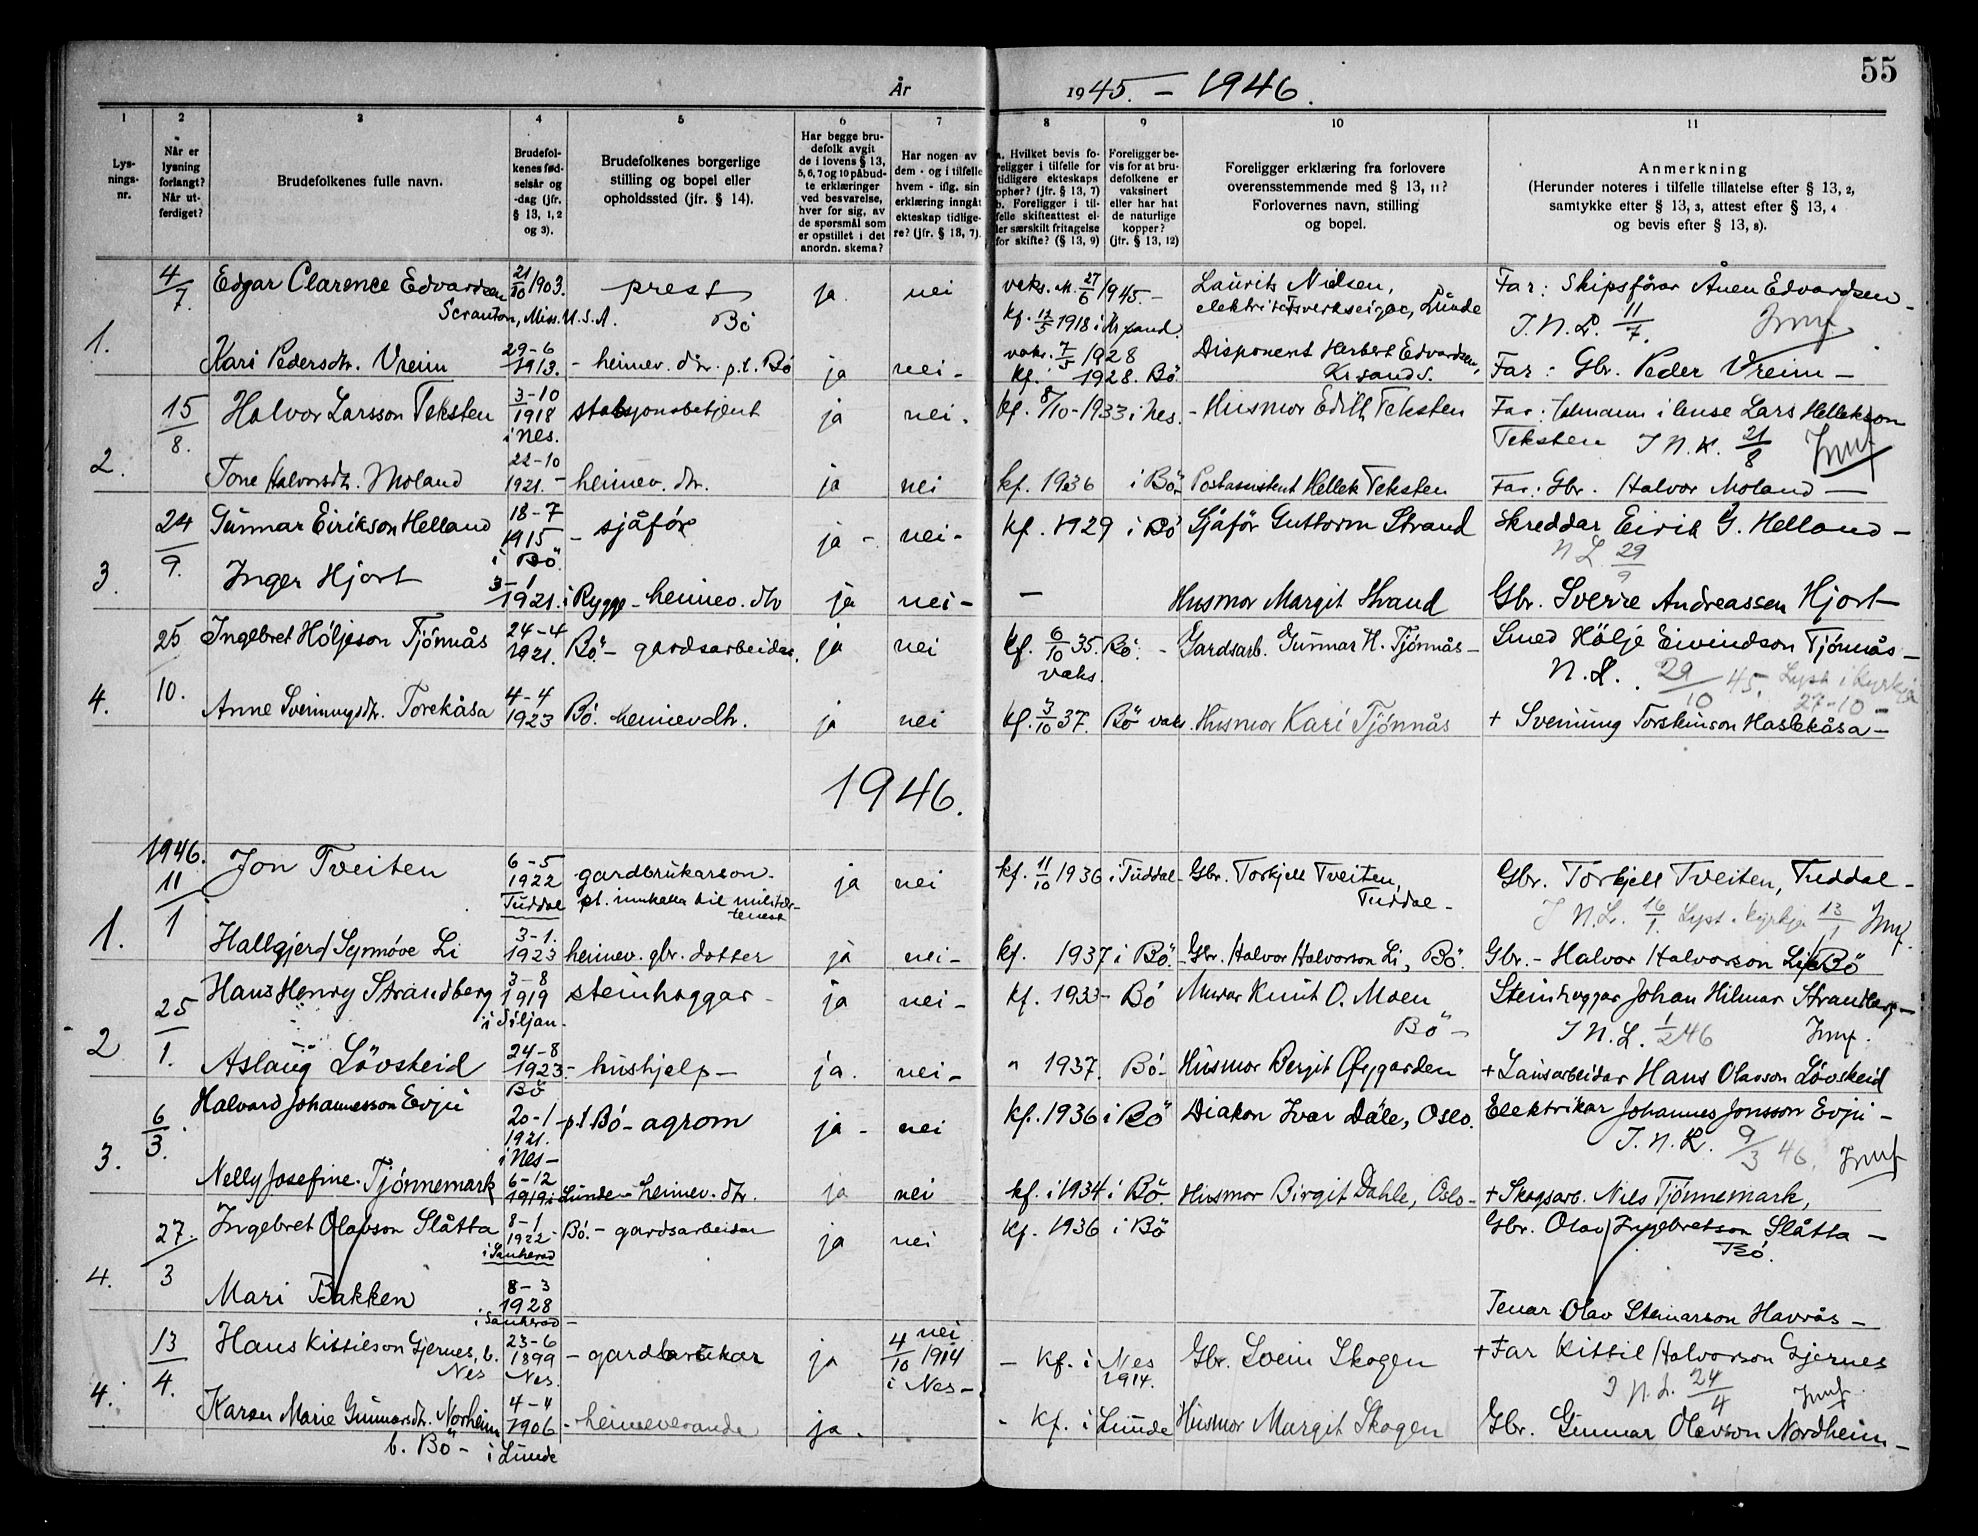 55
År 1945. – 1946.
1 2 3 4 5 6 7 8 9 10 11
Lys-
nings-
nr.
Når er
lysning
forlangt?
Når ut-
ferdiget?
Brudefolkenes fulle navn.
Brudefol-
kenes fød-
selsår og
-dag (jfr.
§ 13, 1, 2
og 3).
Brudefolkenes borgerlige
stilling og bopel eller
opholdssted (jfr. § 14).
Har begge bru-
defolk avgit
de i lovens § 13,
5, 6, 7 og 10 påbud-
te erklæringer
ved besvarelse,
hver for sig, av
de spørsmål som
er opstillet i det
anordn. skema?
Har nogen av
dem - og i tilfelle
hvem - iflg. sin
erklæring inngåt
ekteskap tidlige-
re? (jfr. § 13, 7).
a. Hvilket bevis fo-
religger i tilfelle for
tidligere ekteskaps
ophør? (jfr. § 13, 7)
b. Foreligger i til-
felle skifteattest el-
ler særskilt fritagelse
for skifte? (§ 13, 9)
Foreligger be-
vis for at bru-
defolkene er
vaksinert
eller har hat
de naturlige
kopper?
(jfr. § 13, 12)
Foreligger erklæring fra forlovere
overensstemmende med § 13, 11?
Forlovernes navn, stilling
og bopel.
Anmerkning
(Herunder noteres i tilfelle tillatelse efter § 13, 2,
samtykke efter § 13, 3, attest efter § 13, 4
og bevis efter § 13, 8).
1. 4/7 Edgar Clarence Edvardsen 21/10 1903. prest ja. nei vaks. M. 27/6 1945. – Laurits Nielsen, Far: Skipsförar Ånen Edvardsen –
Scranton, Miss. U.S.A. Bö kf. 12/5 1918 i Kr.sand. elektrisitetsverkseigar, Lunde I. N. L. 11/7.
Kari Pedersdtr. Vreim 29–6 1913. – heimev. dtr. p.t. Bö ja nei – vaks. 7/5 1928 kf. 1928. Bö. Disponent Herbert Edvardsen, Kr.sand S. Far: Gbr. Peder Vreim –
2. 15/8. Halvor Larsson Teksten 3–10 1918 i Nes. stasjonsbetjent ja nei. kf. 8/10–1933 i Nes. – Husmor Edith Teksten Far: Lars Hellekson
Teksten I N. L. 21/8
Tone Halvorsdtr. Moland 22–10 1921. – heimev. dtr. ja nei kf. 1936 i Bö Postassistent Hellek Teksten Far: Gbr. Halvor Moland –
3. 24/9. Gunnar Eirikson Helland 18–7 1915 i Bö. – sjåför ja – nei – Kf. 1929 i Bö Sjåför Guttorm Strand Skreddar Eirik G. Helland –
N L. 29/9
Inger Hjort 3–1 1921. i Rygge – heimev. dtr ja nei – – Husmor Margit Strand Gbr. Sverre Andreassen Hjort
4. 25/10. Ingebret Höljeson Tjönnås 24–4 1921. Bö. – gardsarbeidar. ja nei kf. 6/10 35. Bö. – vaks. Gardsarb. Gunnar H. Tjönnås – Smed Hölje Eivindson Tjönnås –
N. L. 29/10 45. Lyst i kyrkja 27–10 –
Anne Sveinungsdtr. Torekåsa 4–4 1923 Bö. heimev dtr. ja nei kf. 3/10 37. Bö vaks. Husmor Kari Tjönnås + Sveinung Haslekåsa –
1946.
1946.
1. 11/1 Jon Tveiten 6–5 1922 Tuddal gardbrukarson. ja nei kf. 11/10 1936 i Tuddal – Gbr. Torkjell Tveiten, Tuddal – Gbr. Torkjell Tveiten, Tuddal –
pt. innkalla til militær-
tenest
I N. L. 16/1. Lyst. kyrkja 13/1
Hallgjerd Synnöve Li 3–1. 1923 heimev. gbr. dotter ja nei – kf. 1937 i Bö. – Gbr. Halvor Halvorson Li, Bö. Gbr. – Halvor Halvorson Li Bö
2 25/1. Hans Henry Strandberg 3–8 1919 i Siljan – steinhoggar – ja nei – kf. 1933 – Bö Murar Knut O. Moen Bö – Steinhoggar Johan Hilmar Strandberg –
I N. L. 1/2 46
Aslaug Lövskeid 24–8 1923 Bö – hushjelp – ja. nei – " 1937. Bö – Husmor Bergit Øygarden + Lausarbeidar Hans Olavson Lövskeid
3. 6/3. Halvard Johannesson Evju 20–1 1921. i Nes – p.t Bö – agrom ja – nei kf. 1936 i Bö Diakon Ivar Dåle, Oslo. Elektrikar Johannes Jonsson Evju –
I. N. L. 9/3 46.
Nelly Josefine Tjönnemark 6–12 1919 i Lunde – heimev. dtr. ja nei kf. i 1934 i Bö. Husmor Birgit Dahle, Oslo – + Skogsarb. Nils Tjönnemark,
4. 27./3 Ingebret Olavson Slåtta 8–1 1922 – i Sauherad Bö. – gardsarbeidar ja nei kf. 1936 i Bö Gbr. Olav Ingebretson Slåtta – Bö.
Mari Bakken 8–3 1928 i Sauherad – Olav Steinarson Havrås –
4. 13/4. Hans Kittilson Gjernes, b. Nes 23–6 1899 Nes. – gardbrukar ja nei 4/10 1914 i Nes – – Kf. i Nes 1914. Gbr. Svein Skogen + Far Kittil Halvorson Gjernes
I N. L. 24/4
Karen Marie Gunnarsdtr. Norheim b. Bö – 4–4 1906 i Lunde – heimeverande ja. – Kf. i Lunde Husmor Margit Skogen Gbr. Gunnar Olavson Nordheim –